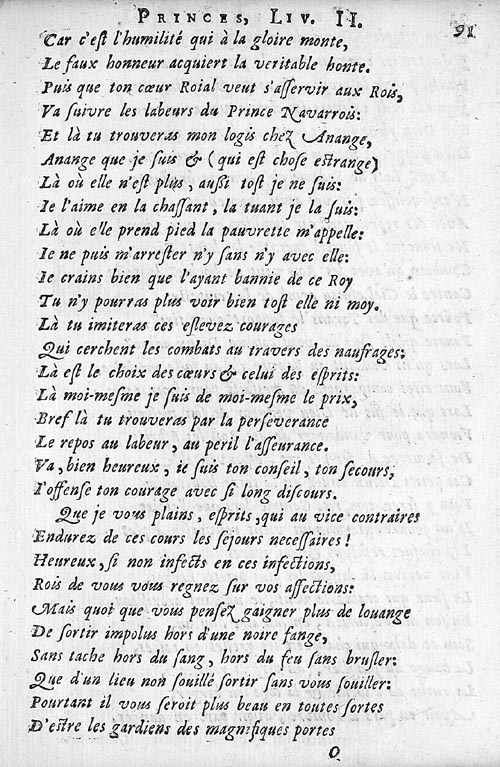 PRINCES, LIV. II.
91
Car c'eſt l'humilité qui à la gloire monte,
Le faux honneur acquiert la veritable honte.
Puis que ton cœur Roial veut s'aſſervir aux Rois,
Va ſuivre les labeurs du Prince Navarrois:
Et là tu trouveras mon logis chez Anange,
Anange que je ſuis & (qui eſt choſe eſtrange)
Là où elle n'eſt plus, außi toſt je ne ſuis:
Ie l'aime en la chaſſant, la tuant je la ſuis:
Là où elle prend pied la pauvrette m'appelle:
Ie ne puis m'arreſter n'y ſans n'y avec elle:
Ie crains bien que l'ayant bannie de ce Roy
Tu n'y pourras plus voir bien toſt elle ni moy.
Là tu imiteras ces eſlevez courages
Qui cerchent les combats au travers des naufrages:
Là eſt le choix des cœurs & celui des eſprits:
Là moi-meſme je ſuis de moi-meſme le prix,
Bref là tu trouveras par la perſeverance
Le repos au labeur, au peril l'aſſeurance.
Va, bien heureux, ie ſuis ton conſeil, ton ſecours,
I'offenſe ton courage avec ſi long diſcours.
Que je vous plains, eſprits, qui au vice contraires
Endurez de ces cours les ſejours neceſſaires!
Heureux, ſi non infects en ces infections,
Rois de vous vous regnez ſur vos affections:
Mais quoi que vous penſez gaigner plus de louange
De ſortir impolus hors d'une noire fange,
Sans tache hors du ſang, hors du feu ſans bruſler:
Que d'un lieu non ſouillé ſortir ſans vous ſouiller:
Pourtant il vous ſeroit plus beau en toutes ſortes
D'eſtre les gardiens des magnifiques portes
O